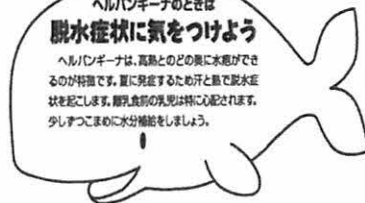 ヘルパンギーナのときは
脱水症状に気をつけよう
ヘルパンギーナは、高熱とのどの奥に水疱ができ
るのが特徴です。夏に発症するため汗と熱で脱水症
状を起こします。離乳食前の乳児は特に心配されます。
少しずつこまめに水分補給をしましょう。